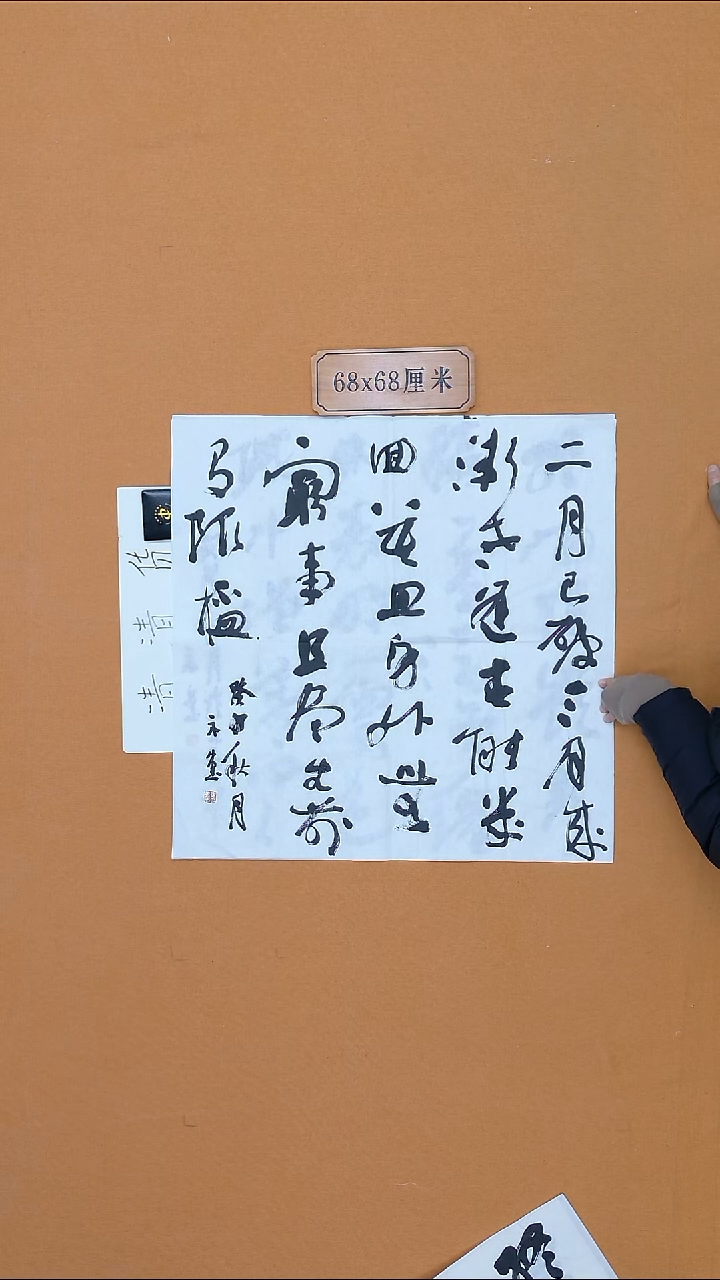 68x68厘米
二月已破三月來
漸老逢春能幾
回莫思身外無
窮事且尽生前
有限杯
癸卯秋月